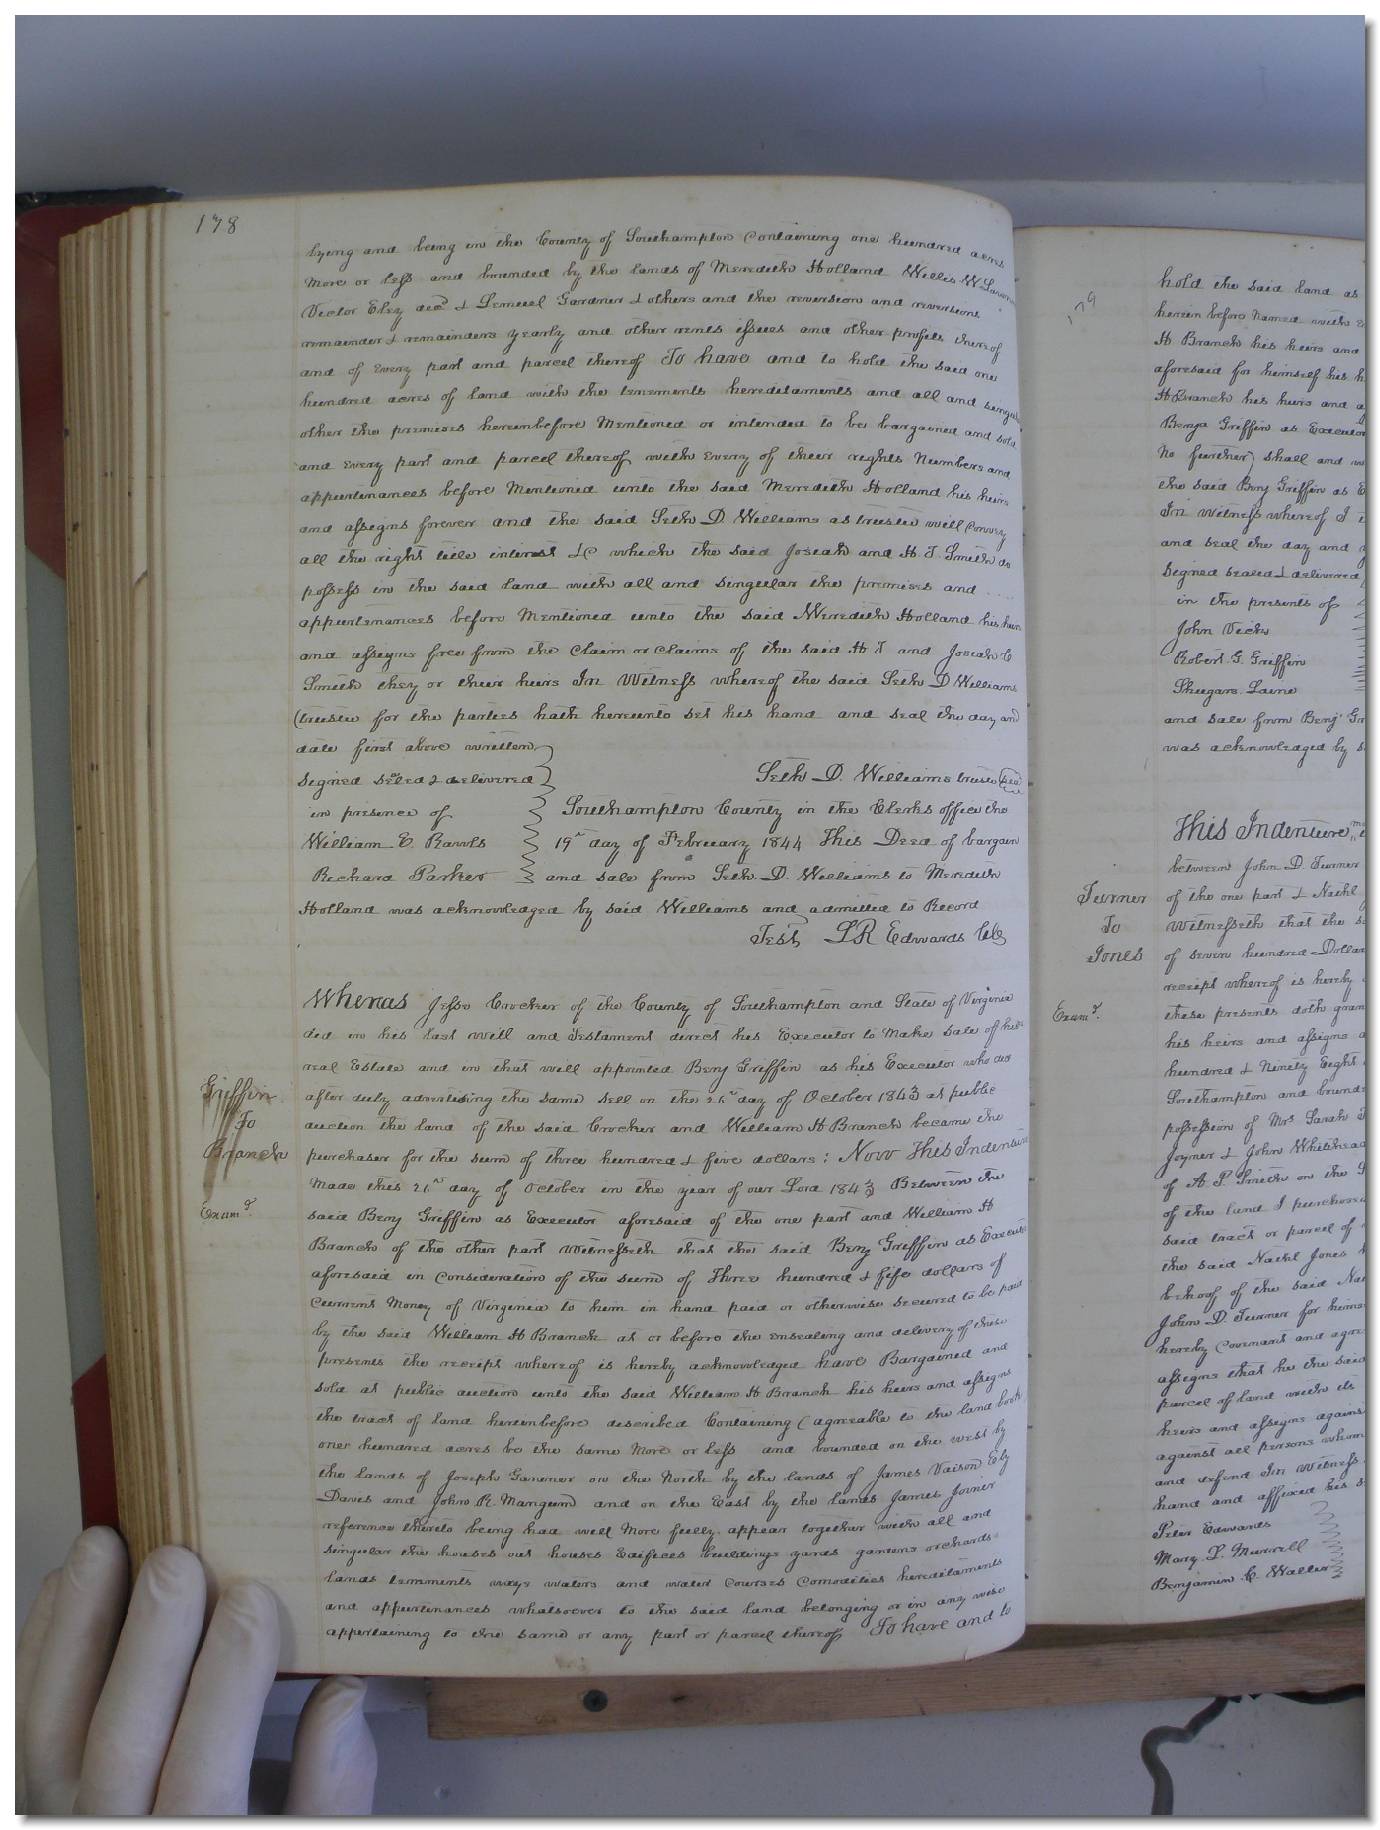 178
lying and being in the County of Southampton Containing one hundred acres
more or less and bounded by the lands of Meredith Holland Willis W
Victor Eley decd & Lemuel Gardner & others and the reversion and reversions
remainder & remainders yearly and other rents issues and other profits thereof
and of every part and parcel thereof To have and to hold the said one
hundred acres of land with the tenements hereditaments and all and singular
other the premises hereinbefore Mentioned or intended to be bargained and sold
and every part and parcel thereof with every of their rights Numbers and
appurtenances before Mentioned unto the said Meredith Holland his heirs
and assigns forever and the said Seth D. Williams as trustee will Convey
all the right title interest &C which the said Josiah and H. T. Smith do
possess in the said land with all and singular the premises and
appurtenances before Mentioned unto the said Meredith Holland his heirs
and assigns free from the Claim or Claims of the said H T and Josiah C
Smith they or their heirs In Witness whereof the said Seth D Williams
(trustee for the parties hath hereunto set his hand and seal the day and
date first above written
Signed sealed & delivered
in presence of
William E. Rawls
Richard Parker
Seth D. Williams trustee Seal
Southampton County in the Clerks office the
19th day of February 1844 This Deed of bargain
and sale from Seth. D. Williams to Meredith
Holland was acknowledged by said Williams and admitted to Record
Test L R Edwards Clk
Griffin
To
Branch
Examd.
Whereas Jesse Crocker of the County of Southampton and State of Virginia
did in his last will and Testament direct his Executor to Make sale of his
real Estate and in that will appointed Benj Griffin as his Executor who did
after duly advertising the same sell on the 21st day of October 1843 at public
auction the land of the said Crocker and William H Branch became the
purchaser for the sum of three hundred & five dollars: Now This Indenture
Made this 21st day of October in the year of our Lord 1843 Between the
said Benj Griffin as Executor aforesaid of the one part and William H
Branch of the other part Witnesseth that the said Benj Griffin as Executor
aforesaid in Consideration of the sum of Three hundred & five dollars of
Current Money of Virginia to him in hand paid or otherwise secured to be paid
by the said William H Branch at or before the ensealing and delivery of these
presents the receipt whereof is hereby acknowledged have Bargained and
sold at public auction unto the said William H Branch his heirs and assigns
the tract of land hereinbefore described Containing (agreeable to the land book
one hundred acres be the same More or less and bounded on the west by
the lands of Joseph Gardner on the North by the lands of James Vaison Ely
Daves and John R. Mangum and on the East by the lands James Joiner
reference thereto being had will More fully appear together with all and
singular the houses out houses Edifices buildings yards gardens orchards
lands tenements ways waters and water Courses Comodities hereditaments
and appurtenances whatsoever to the said land belonging or in any wise
appertaining to the same or any part or parcel thereof To have and to
179
hold the said land as
herein before Named with
H Branch his heirs and
aforesaid for himself his h
H Branch his heirs and a
Benja Griffin as Executor
No further) shall and w
the said Benj Griffin as E
In witness whereof I
and seal the day and y
Signed sealed & delivered
in the presents of
John Vicks
Robert. G. Griffin
Shugars. Laine
and sale from Benj Gr
was acknowledged by s
Turner
To
Jones
Examd.
This Indenture
between John D. Turner
of the one part & Nathl
Witnesseth that the s
of seven hundred Dollar
receipt whereof is hereby
these presents doth gran
his heirs and assigns
hundred & Ninety Eight
Southampton and bound
possession of Mrs Sarah
Joyner & John Whitehead
of A. P. Smith on the
of the land I purchased
said tract or parcel of
the said Nathl Jones
behoof of the said Na
John D. Turner for hims
hereby Covenant and agre
assigns that he the said
parcel of land with its
heirs and assigns agains
against all persons whom
and defend In Witness
hand and affixed his s
Peter Edwards
Mary L. Murrell
Benjamin C. Waller